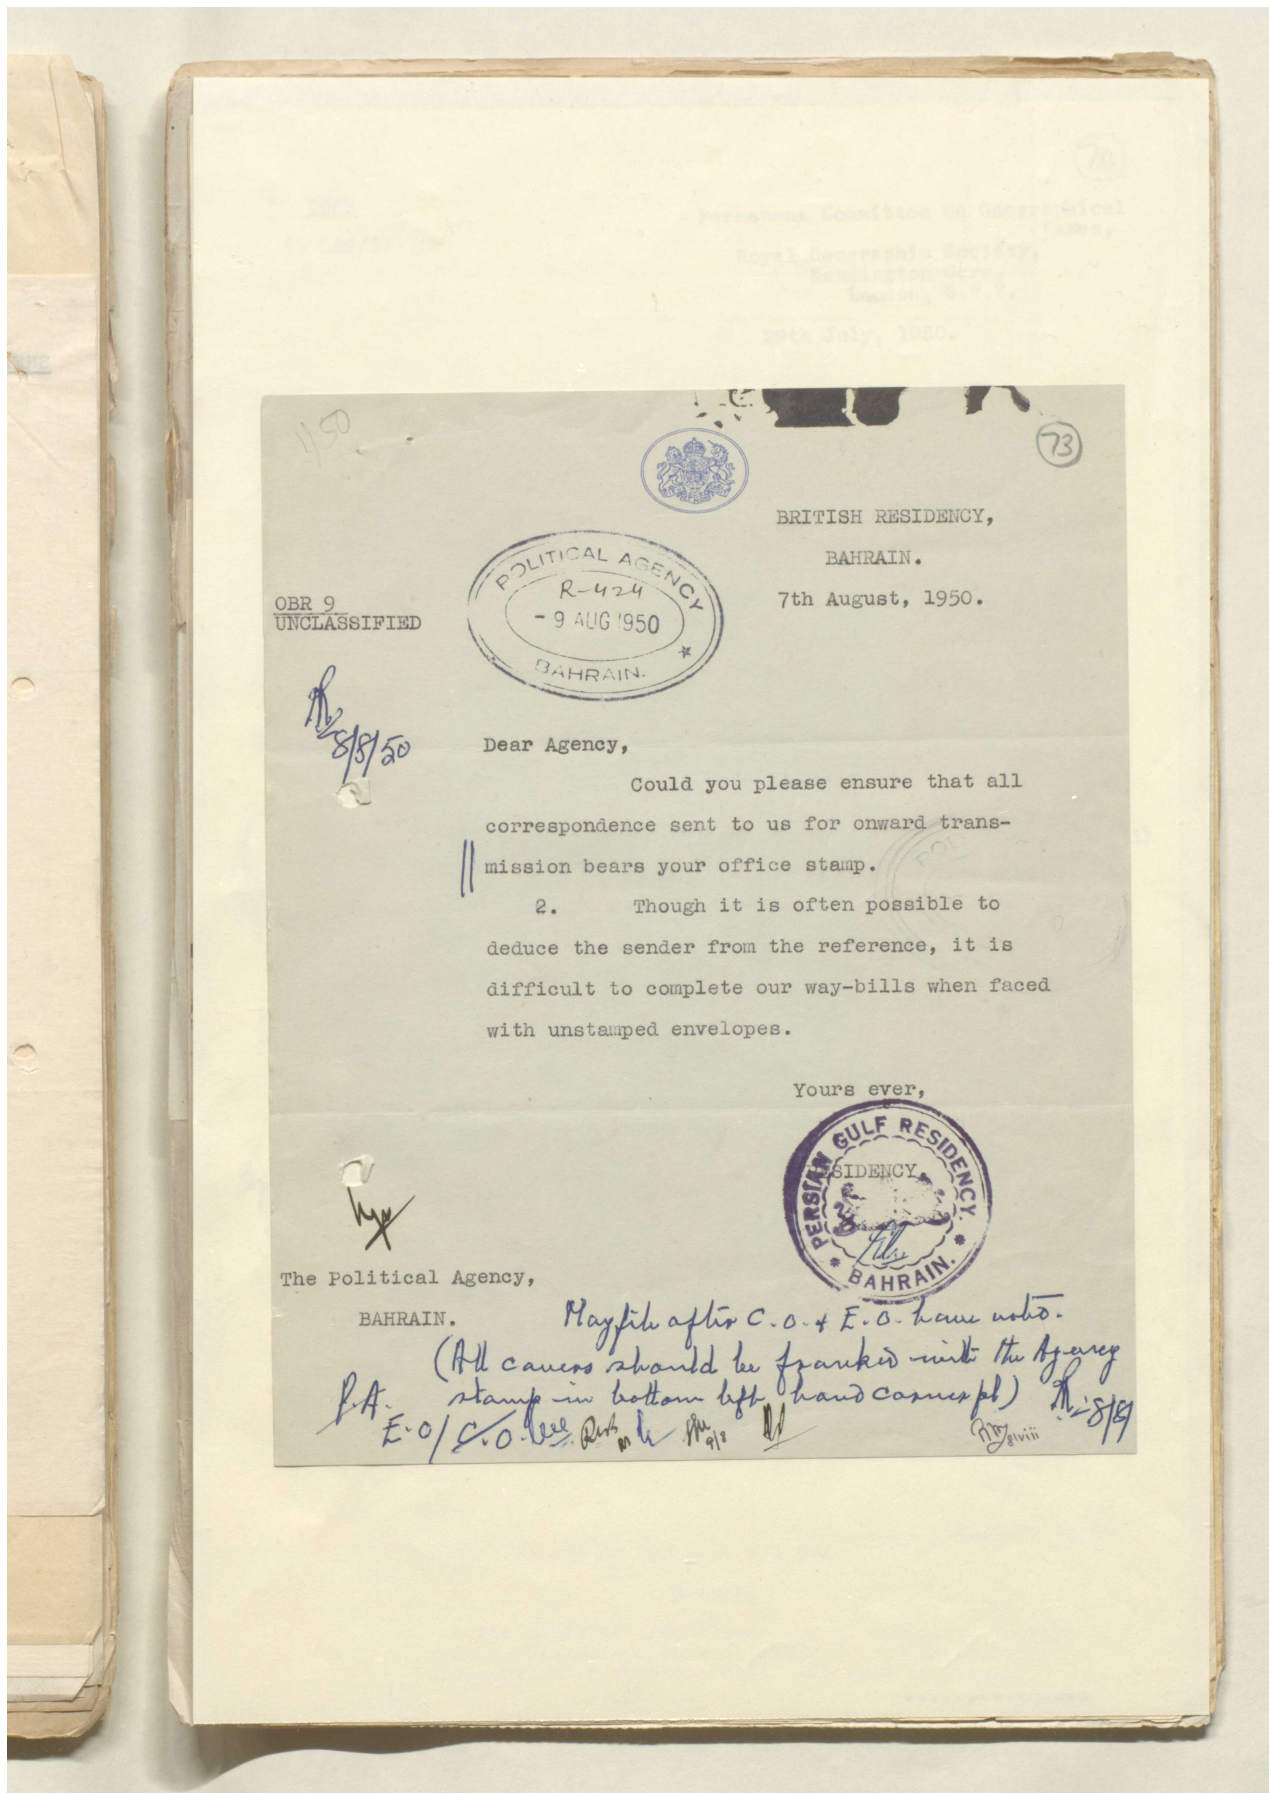 Permanent Committee on Geographical
Names,
Royal Geographic Society,
Kensington Gore,
London, S.W.7.
29th July, 1950.
1/50
73
BRITISH RESIDENCY,
BAHRAIN.
7th August, 1950.
POLITICAL AGENCY
R-424
- 9 AUG 1950
BAHRAIN.
OBR 9
UNCLASSIFIED
8/8/50
Dear Agency,
Could you please ensure that all
correspondence sent to us for onward trans-
mission bears your office stamp.
2. Though it is often possible to
deduce the sender from the reference, it is
difficult to complete our way-bills when faced
with unstamped envelopes.
Yours ever,
RESIDENCY
PERSIAN GULF RESIDENCY.
BAHRAIN.
The Political Agency,
BAHRAIN.
May file after C.O. & E.O. have noted.
(All covers should be franked with the Agency
stamp in bottom left hand corner pl)
P.A.
8/8
E.O/ C.O.
9/8
8/viii